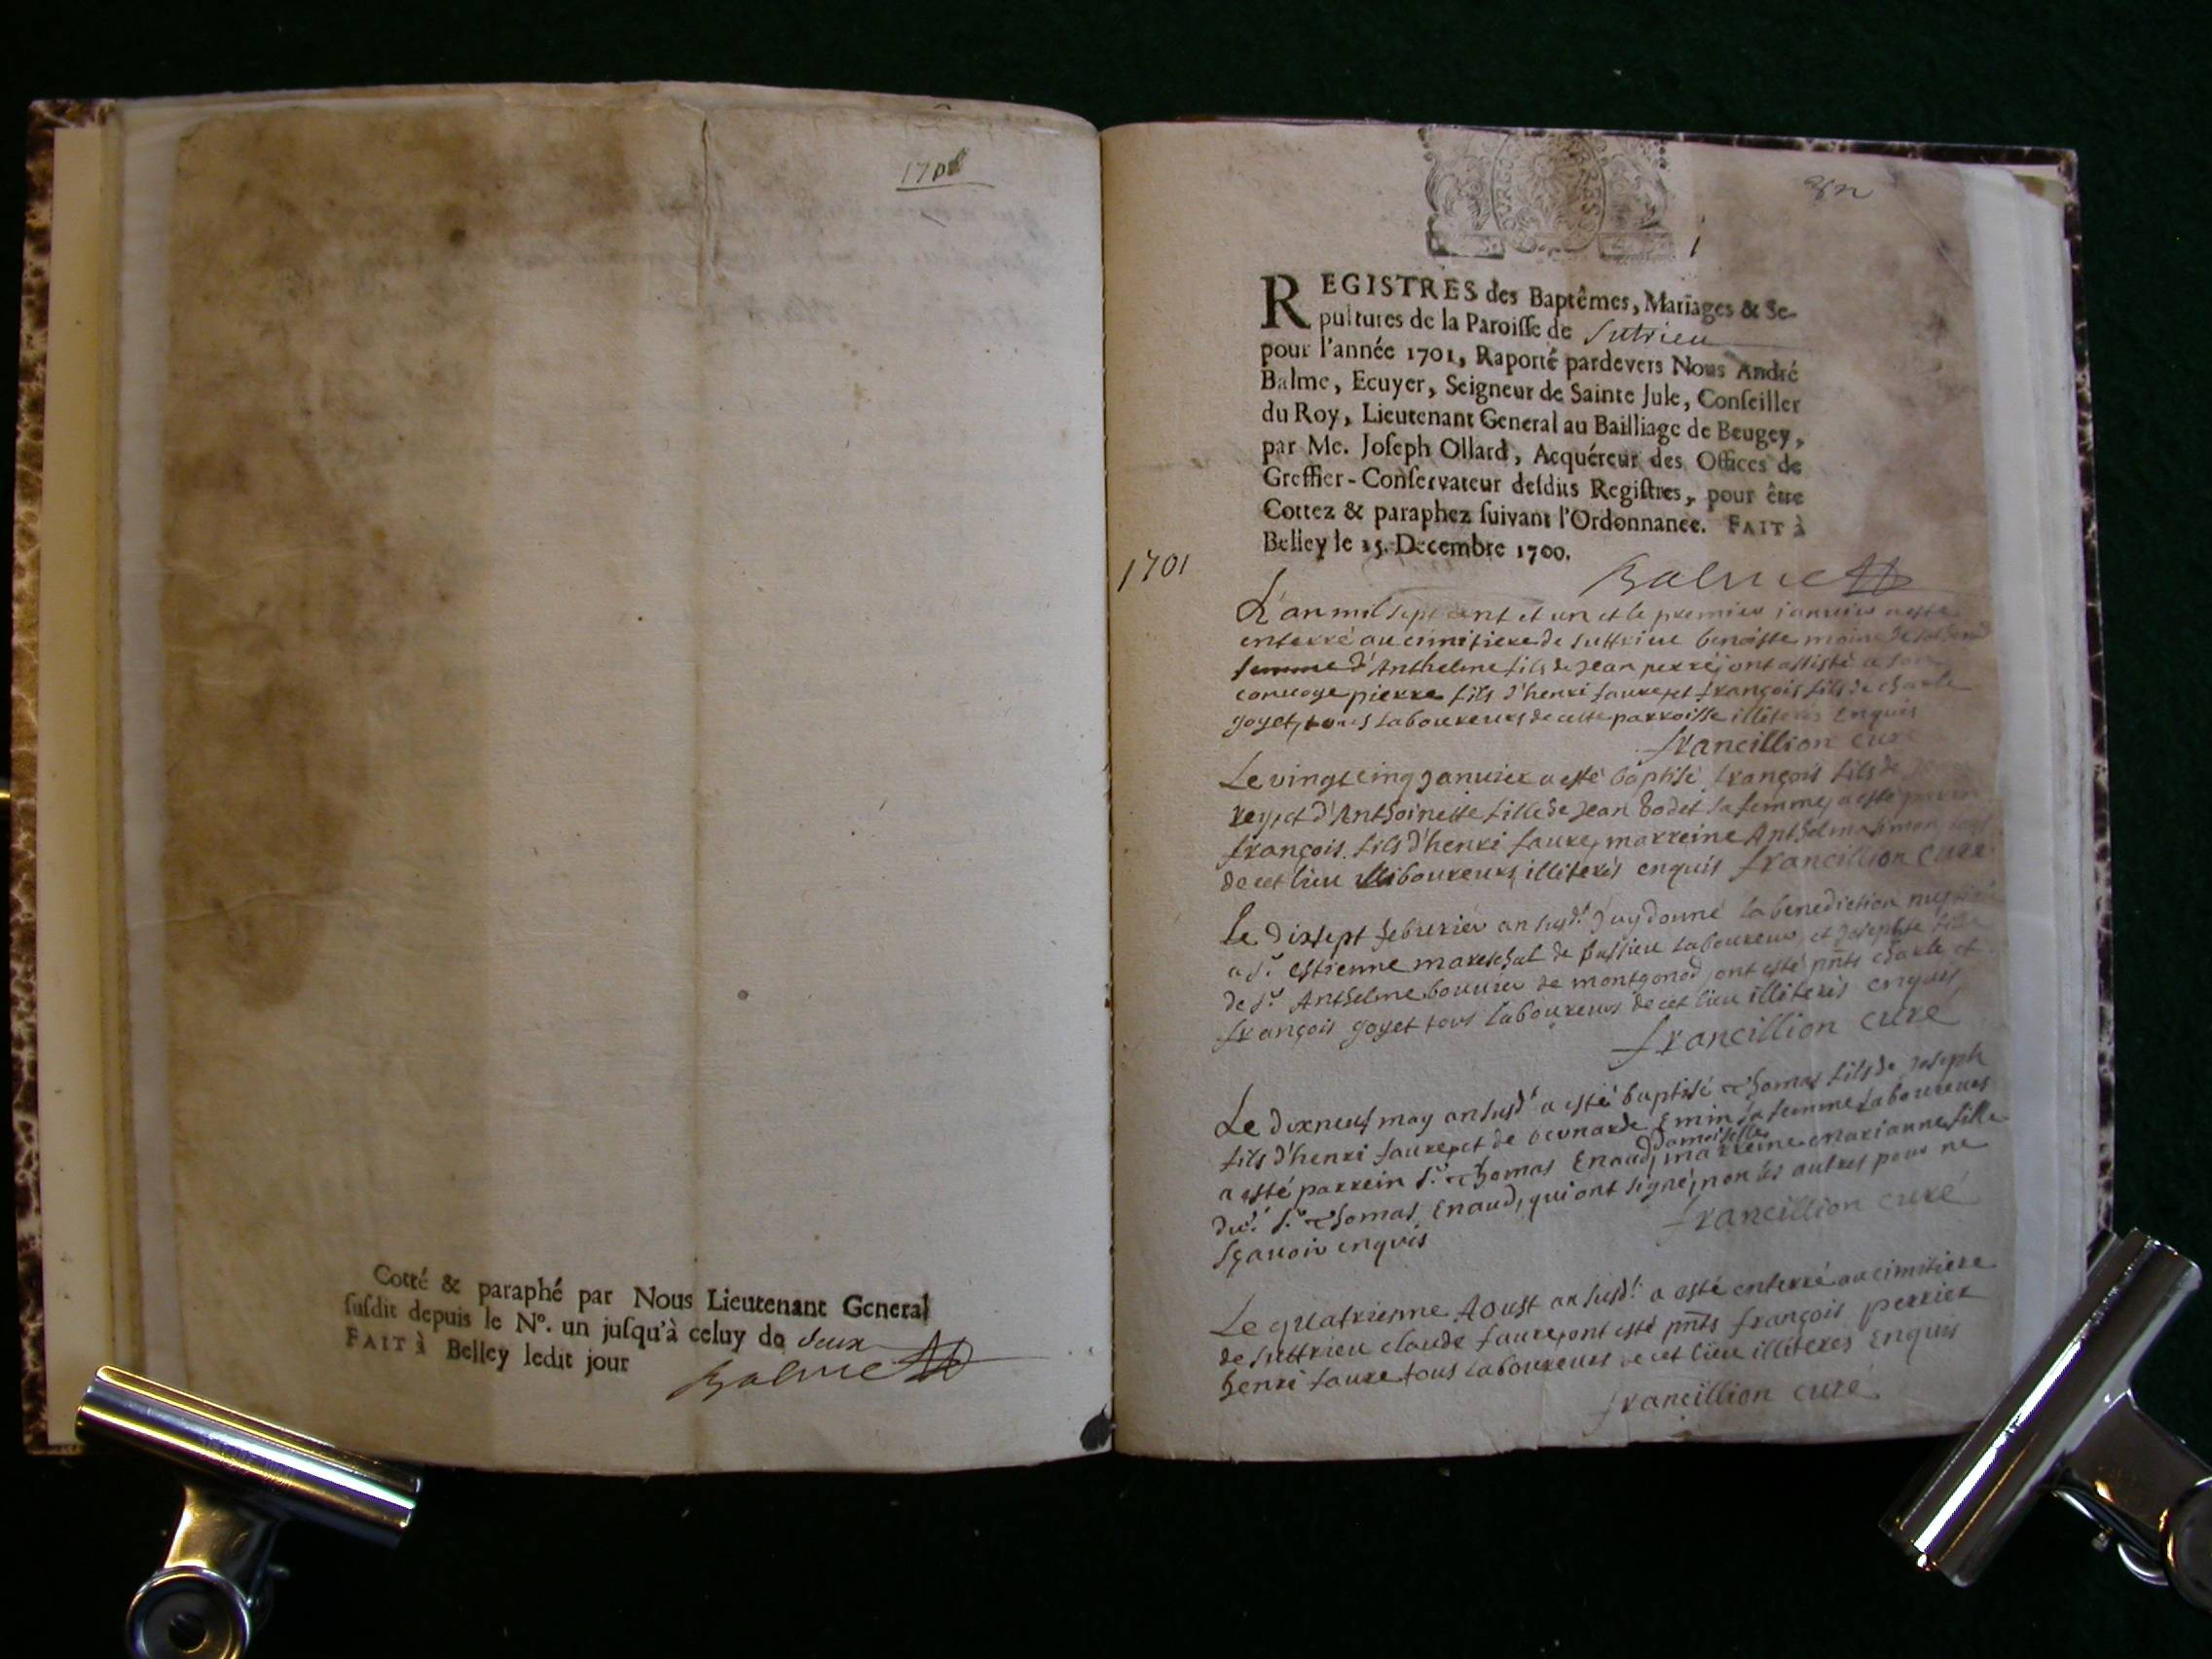 Cotté & paraphé par Nous Lieutenant General
susdit depuis le N°. un jusqu'à celuy de deux
FAIT à Belley ledit jour
Balme
REGISTRES des Baptêmes, Mariages & Se-
pultures de la Paroisse de Sutrieu
pour l'année 1701, Raporté pardevers Nous André
Balme, Ecuyer, Seigneur de Sainte Jule, Conseiller
du Roy, Lieutenant General au Bailliage de Beugey,
par Me. Joseph Ollard, Acquéreur des Offices de
Greffier-Conservateur desdits Registres, pour être
Cottez & paraphez suivant l'Ordonnance. FAIT à
Belley le 15. Decembre 1700.
1701
Balme
L'an mil sept cent et un et le premier janvier a esté
enterré au cimitiere de suttrieu benoiste moine
femme d'Anthelme fils de Jean perré, ont assisté a son
convoye pierre fils d'henri faure, et françois fils de charle
goyet, tous laboureurs de cette parroisse illiterés enquis
francillion curé
Le vingt cinq Janvier a esté baptisé françois fils de
rey, et d'Anthoinette fille de Jean bodet sa femme, a esté parrin
françois fils d'henri faure, marreine Anthelma simon
de cet lieu laboureurs, illiterés enquis francillion curé
Le dixsept febvrier an susd.t J'ay donné la benediction
a s.r estienne mareschal de passieu laboureur, et Josephte fille
de s.r Anthelme bouvier de montgonod, ont esté pñts charle et
françois goyet tous laboureurs de cet lieu illiterés enquis
francillion curé
Le dixneuf may an susd.t a esté baptisé Thomas fils de Joseph
fils d'henri faure, et de bernarde Emin sa femme laboureurs
a esté parrein s.r Thomas Enaud, damoiselle marreine marianne fille
dud.t s.r Thomas Enaud, qui ont signé, non les autres pour ne
sçavoir enquis
francillion curé
Le quatrienme Aoust an susd.t a esté enterré au cimitiere
de suttrieu claude faure, ont esté pñts françois perrier
henri faure tous laboureurs de cet lieu illiterés Enquis
francillion curé